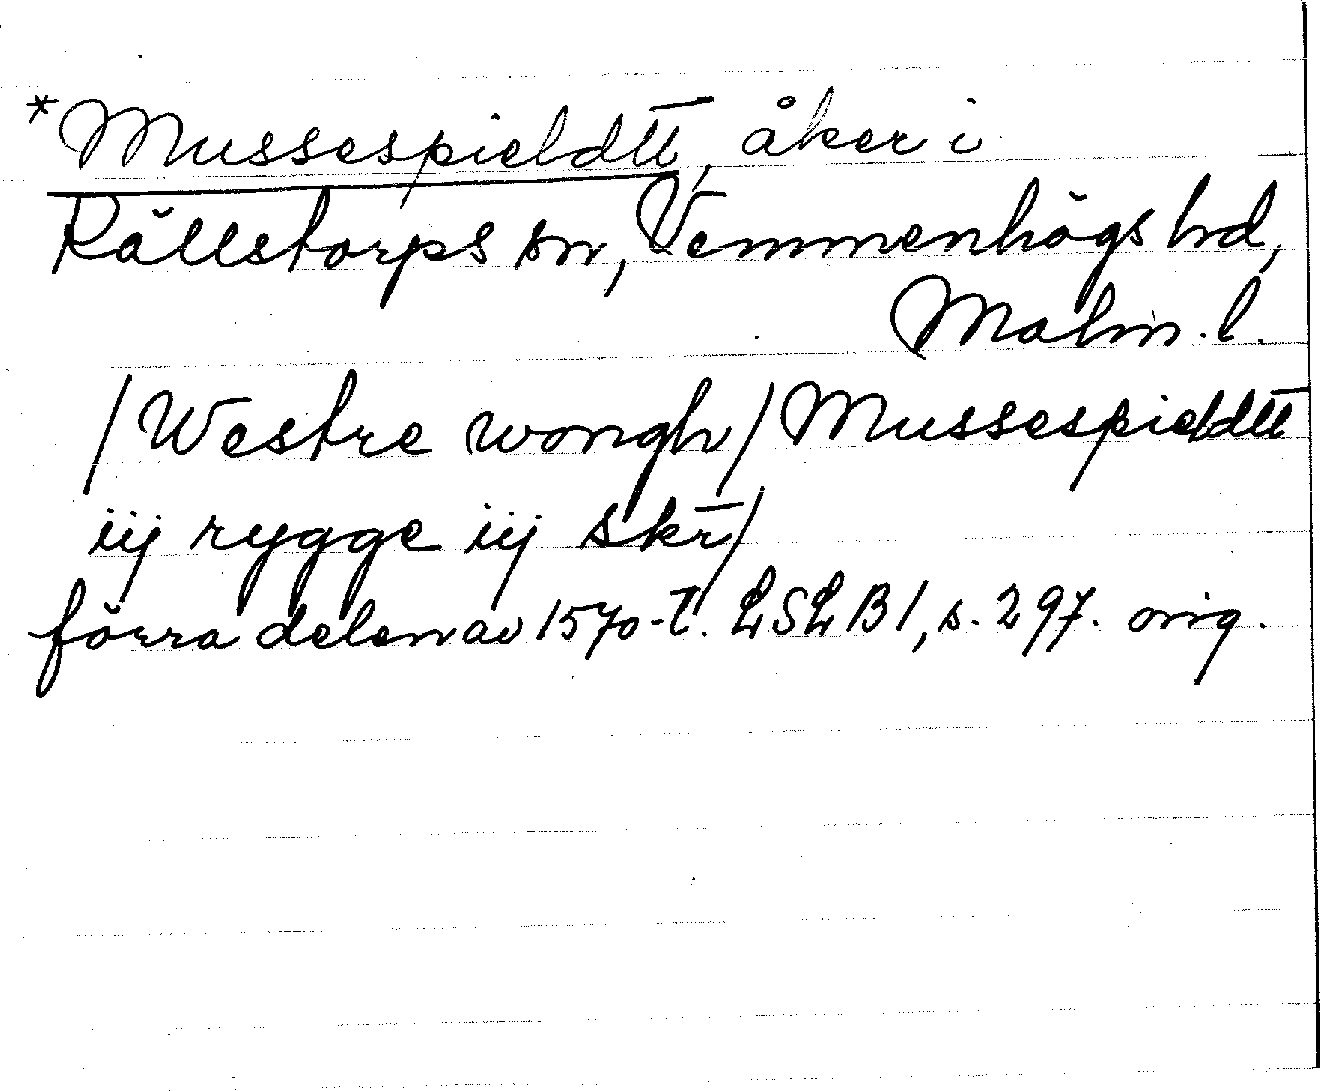 *Mussespieldtt, åker i
Källstorps sn, Vemmenhögs hd,
Malm. l.
/Westre wongh/ Mussespieldtt
iij rygge iij skr̄/
förra delen av 1570-t. LSLB 1, s. 297. orig.